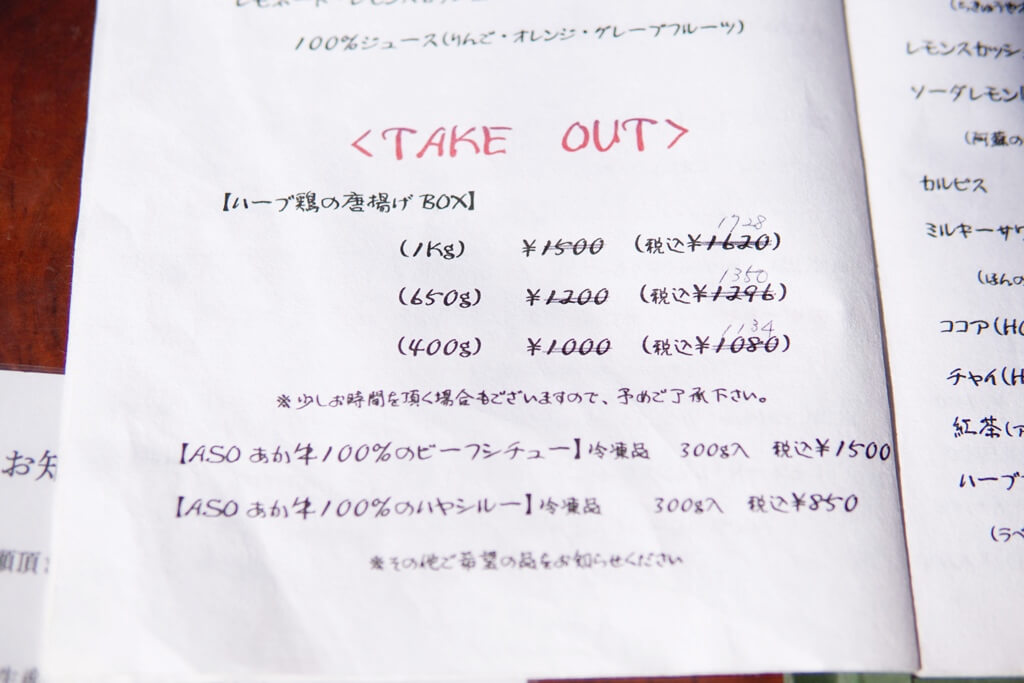 100%ジュース(りんご・オレンジ・グレープフルーツ)
<TAKE OUT>
【ハーブ鶏の唐揚げ BOX】
1728
(1Kg) ¥1500 (税込¥1620)
1350
(650g) ¥1200 (税込¥1296)
1134
(400g) ¥1000 (税込¥1080)
※少しお時間を頂く場合もございますので、予めご了承下さい。
【ASO あか牛100%のビーフシチュー】冷凍品 300g入 税込¥1500
【ASO あか牛100%のハヤシルー】冷凍品 300g入 税込¥850
※その他ご希望の品をお知らせください
レモンスカッシ
ソーダレモン
(阿蘇の
カルピス
ミルキーサワ
(ほんの
ココア(HO
チャイ(H
紅茶(ア
ハーブ
(ラベ
お知
頂